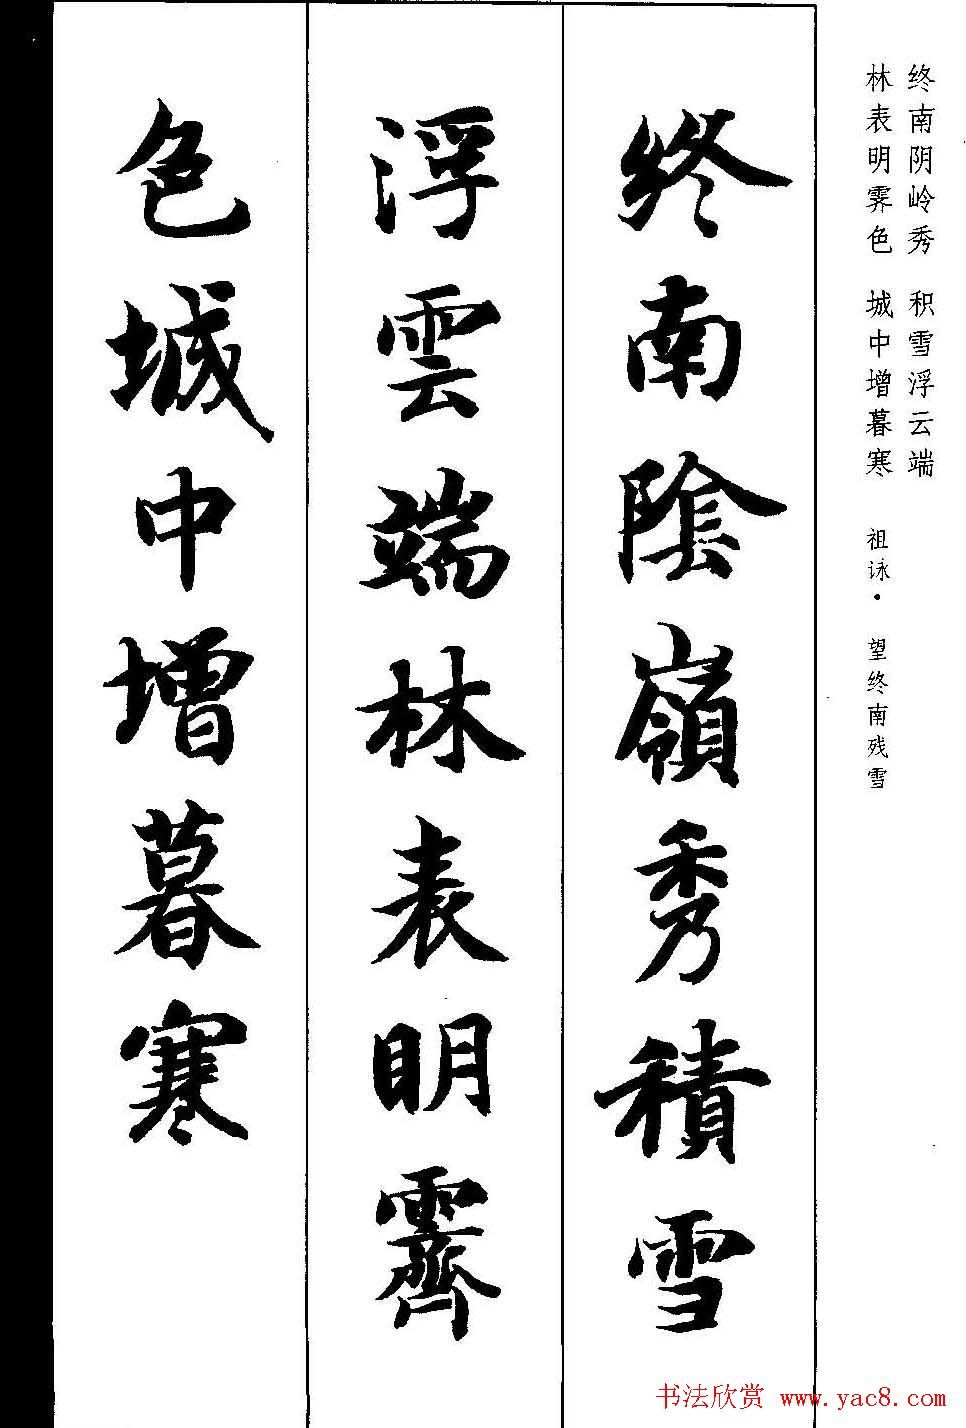 终南阴岭秀 积雪浮云端
林表明霁色 城中增暮寒 祖详· 望终南残雪
終南陰嶺秀積雪
浮雲端林表明霽
色城中增暮寒
书法欣赏 www.yac8.com